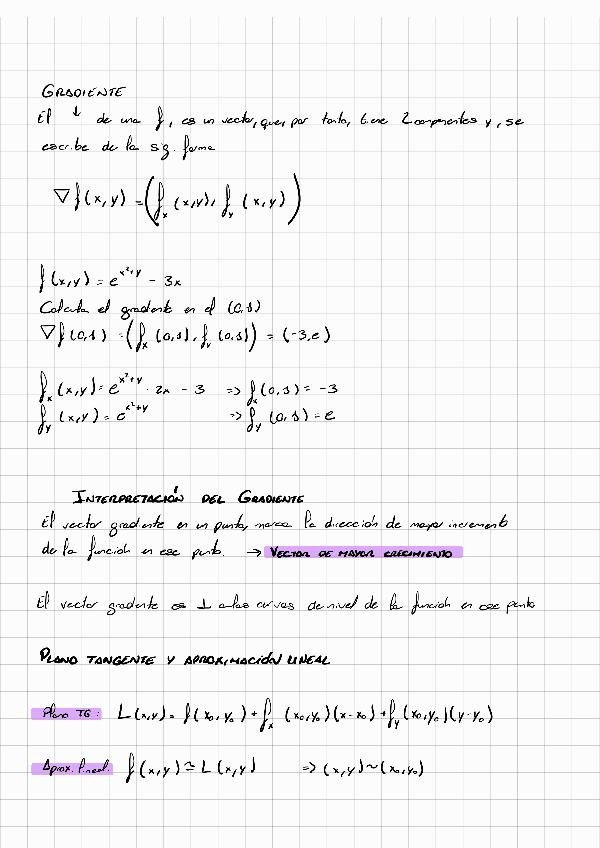 GRADIENTE
El ↓ de una f, es un vector, que, por tanto, tiene 2 componentes y, se
escribe de la sig. forma
∇f(x,y) = (fx (x,y), fy (x,y))
f(x,y) = e^(x²+y) - 3x
Calcula el gradiente en el (0,1)
∇f(0,1) = (fx (0,1), fy (0,1)) = (-3,e)
fx (x,y) = e^(x²+y) · 2x - 3 => fx (0,1) = -3
fy (x,y) = e^(x²+y) => fy (0,1) = e
INTERPRETACIÓN DEL GRADIENTE
El vector gradiente en un punto, marca la dirección de mayor incremento
de la función en ese punto. → VECTOR DE MAYOR CRECIMIENTO
El vector gradiente es ⊥ a las curvas de nivel de la función en ese punto
PLANO TANGENTE Y APROXIMACIÓN LINEAL
Plano TG: L(x,y) = f(x₀,y₀) + fx (x₀,y₀)(x-x₀) + fy (x₀,y₀)(y-y₀)
Aprox. lineal. f(x,y) ≃ L(x,y) => (x,y) ~ (x₀,y₀)